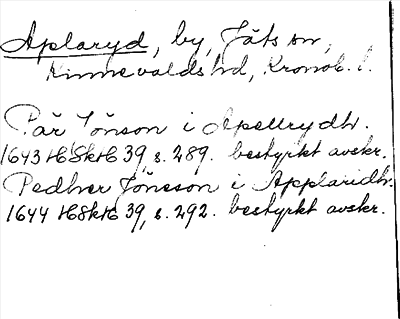 Aplaryd, by, Jäts sn,
Kinnevalds hd, Kronob. l.
Pär Jönson i Apellrydh.
1643 HSkH 39, s. 289. bestyrkt avskr.
Pedher Jönsson i Applaridh.
1644 HSkH 39, s. 292. bestyrkt avskr.